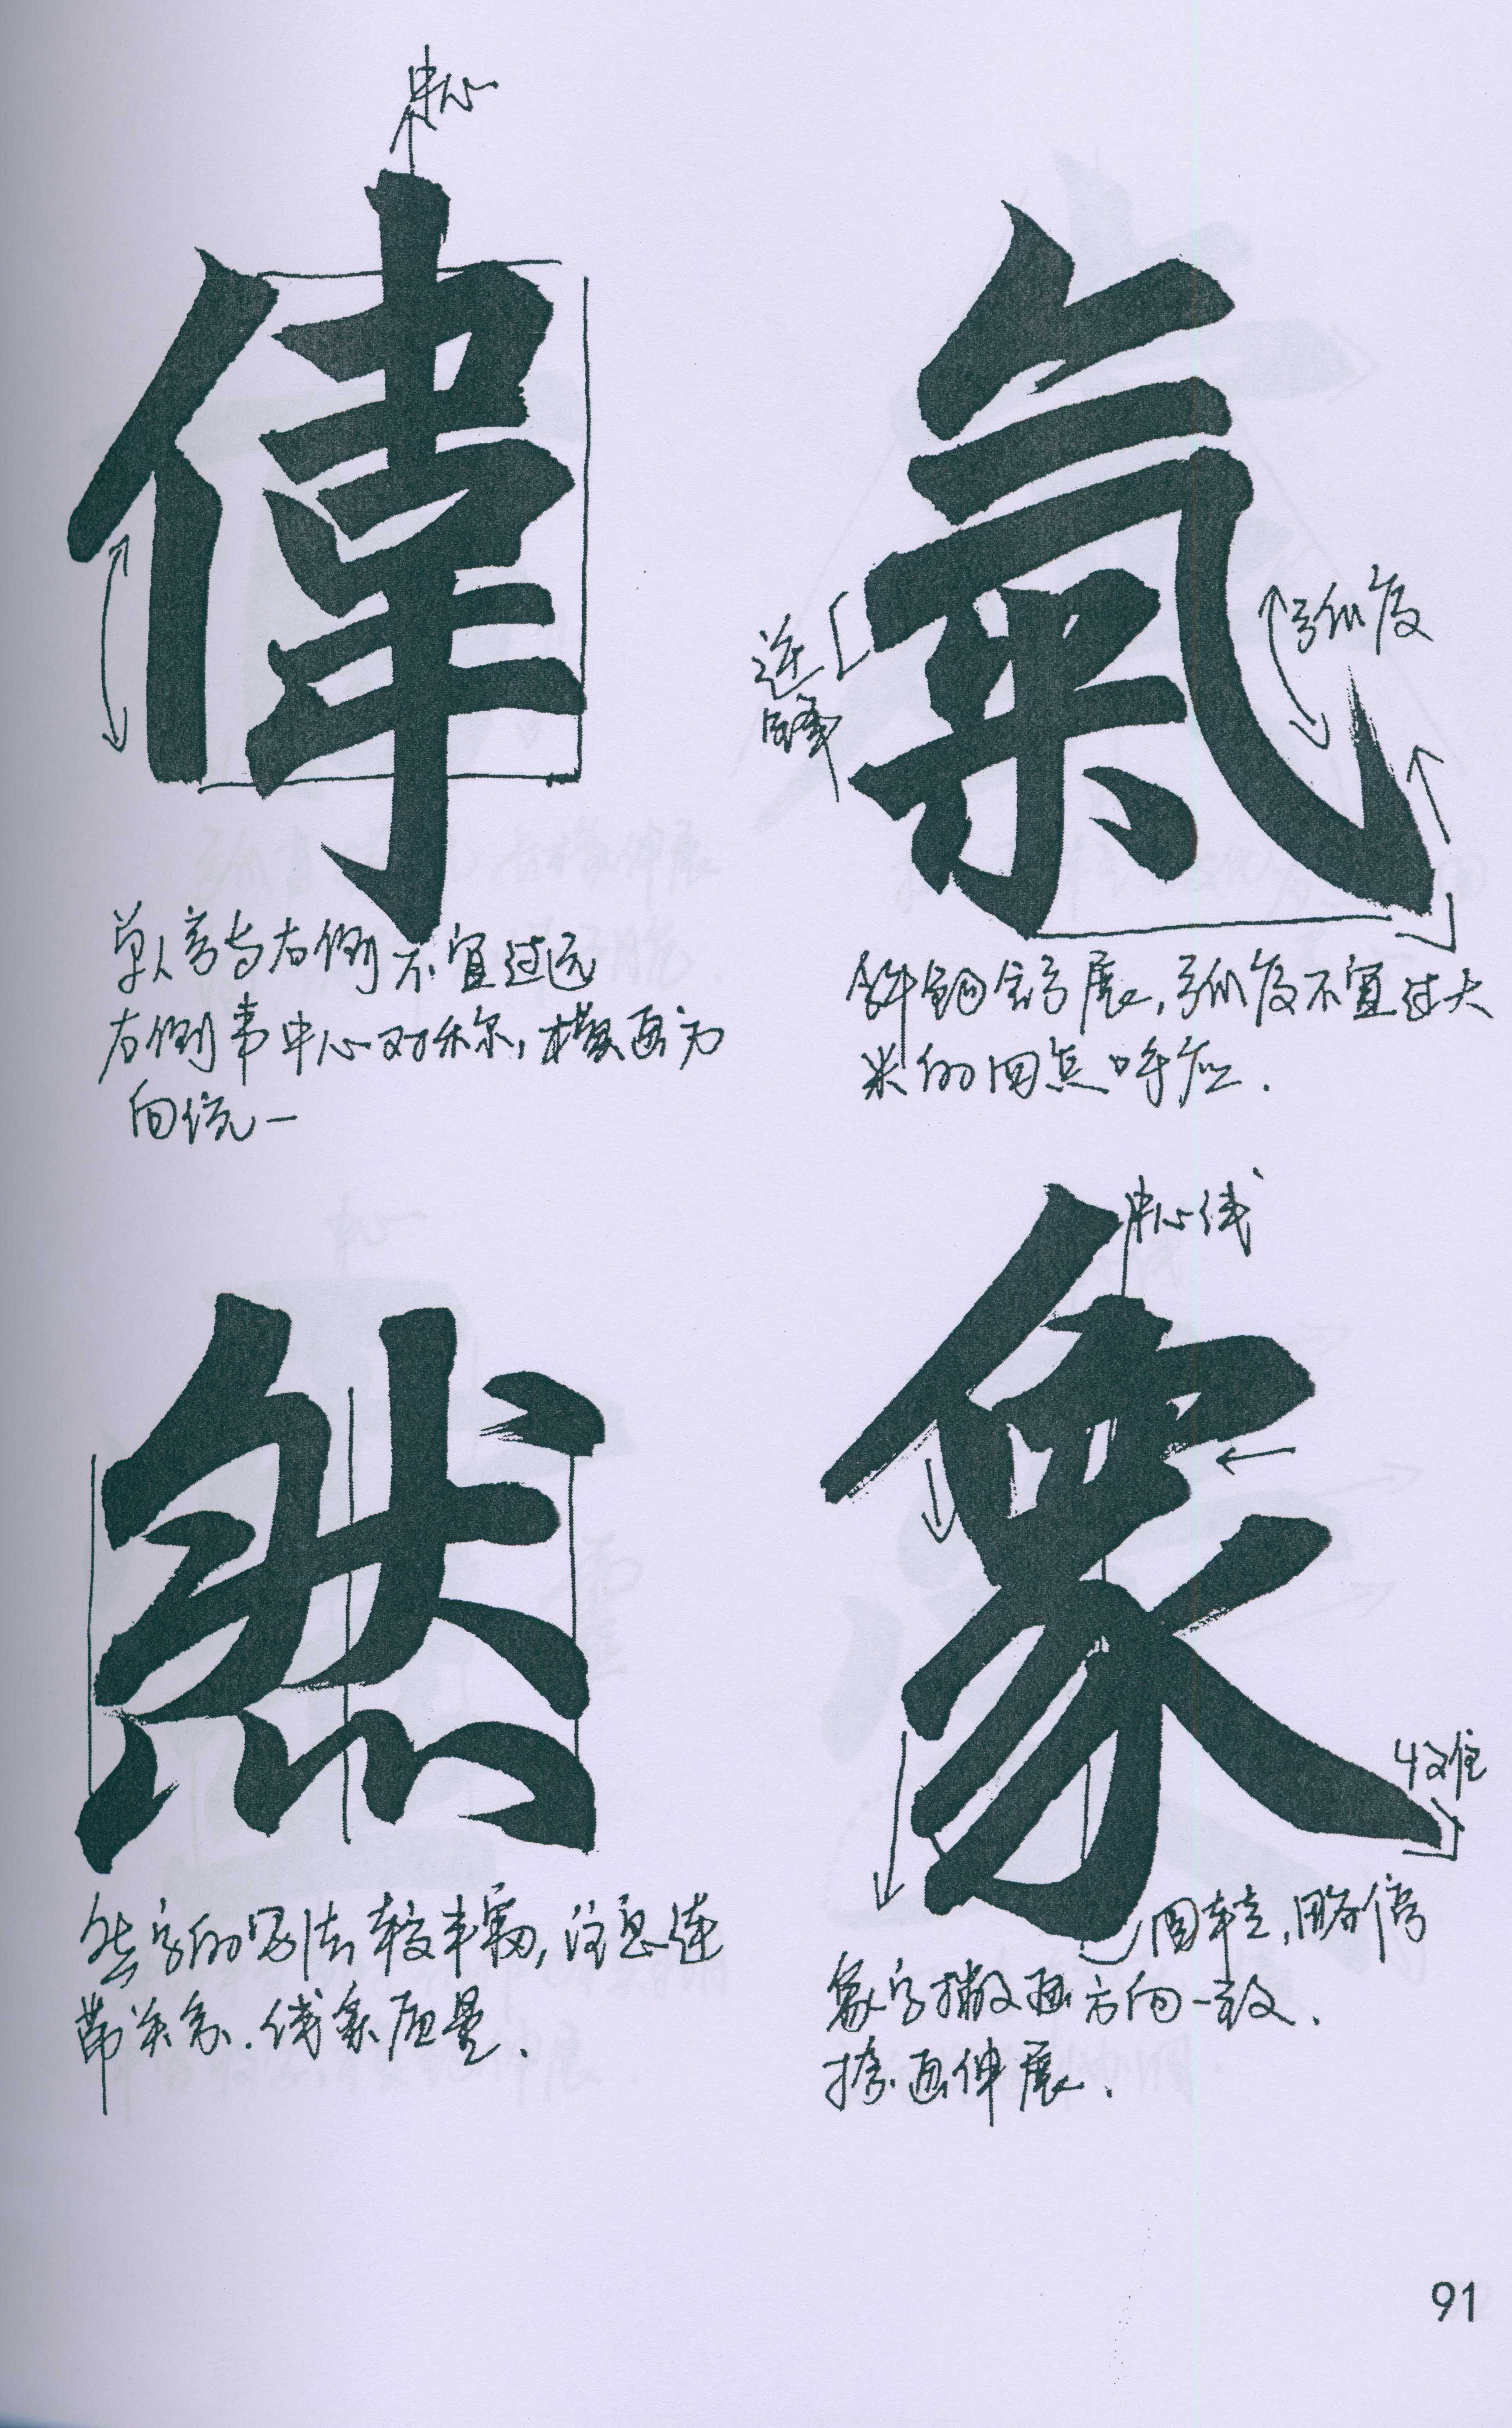 中心
偉
单人旁与右侧不宜过远
右侧韦中心对称,横画方
向统一
氣
逆锋
弧度
斜钩舒展,弧度不宜过大
米的四点呼应.
然
然字的写法较丰富,注意连
带关系.线条质量.
中心线
象
收住
圆转,略停
象字撇画方向一致.
捺画伸展.
91